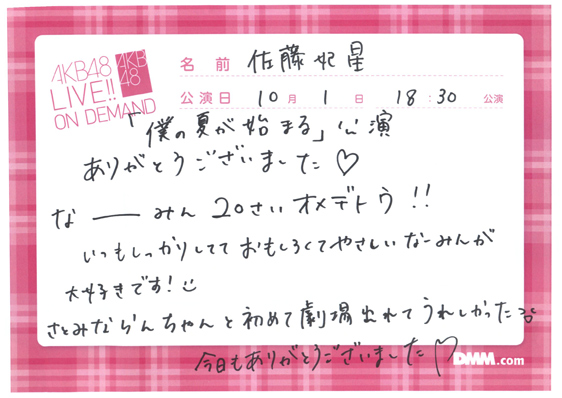 AKB48
LIVE!!
ON DEMAND
AKB
48
名前 佐藤妃星
公演日 10月 1日 18:30 公演
「僕の夏が始まる」公演
ありがとうございました♡
なーみん 20さい オメデトウ!!
いつもしっかりしてて おもしろくてやさしい なーみんが
大好きです!
さとみならんちゃんと初めて劇場出れてうれしかった
今日もありがとうございました♡
DMM.com